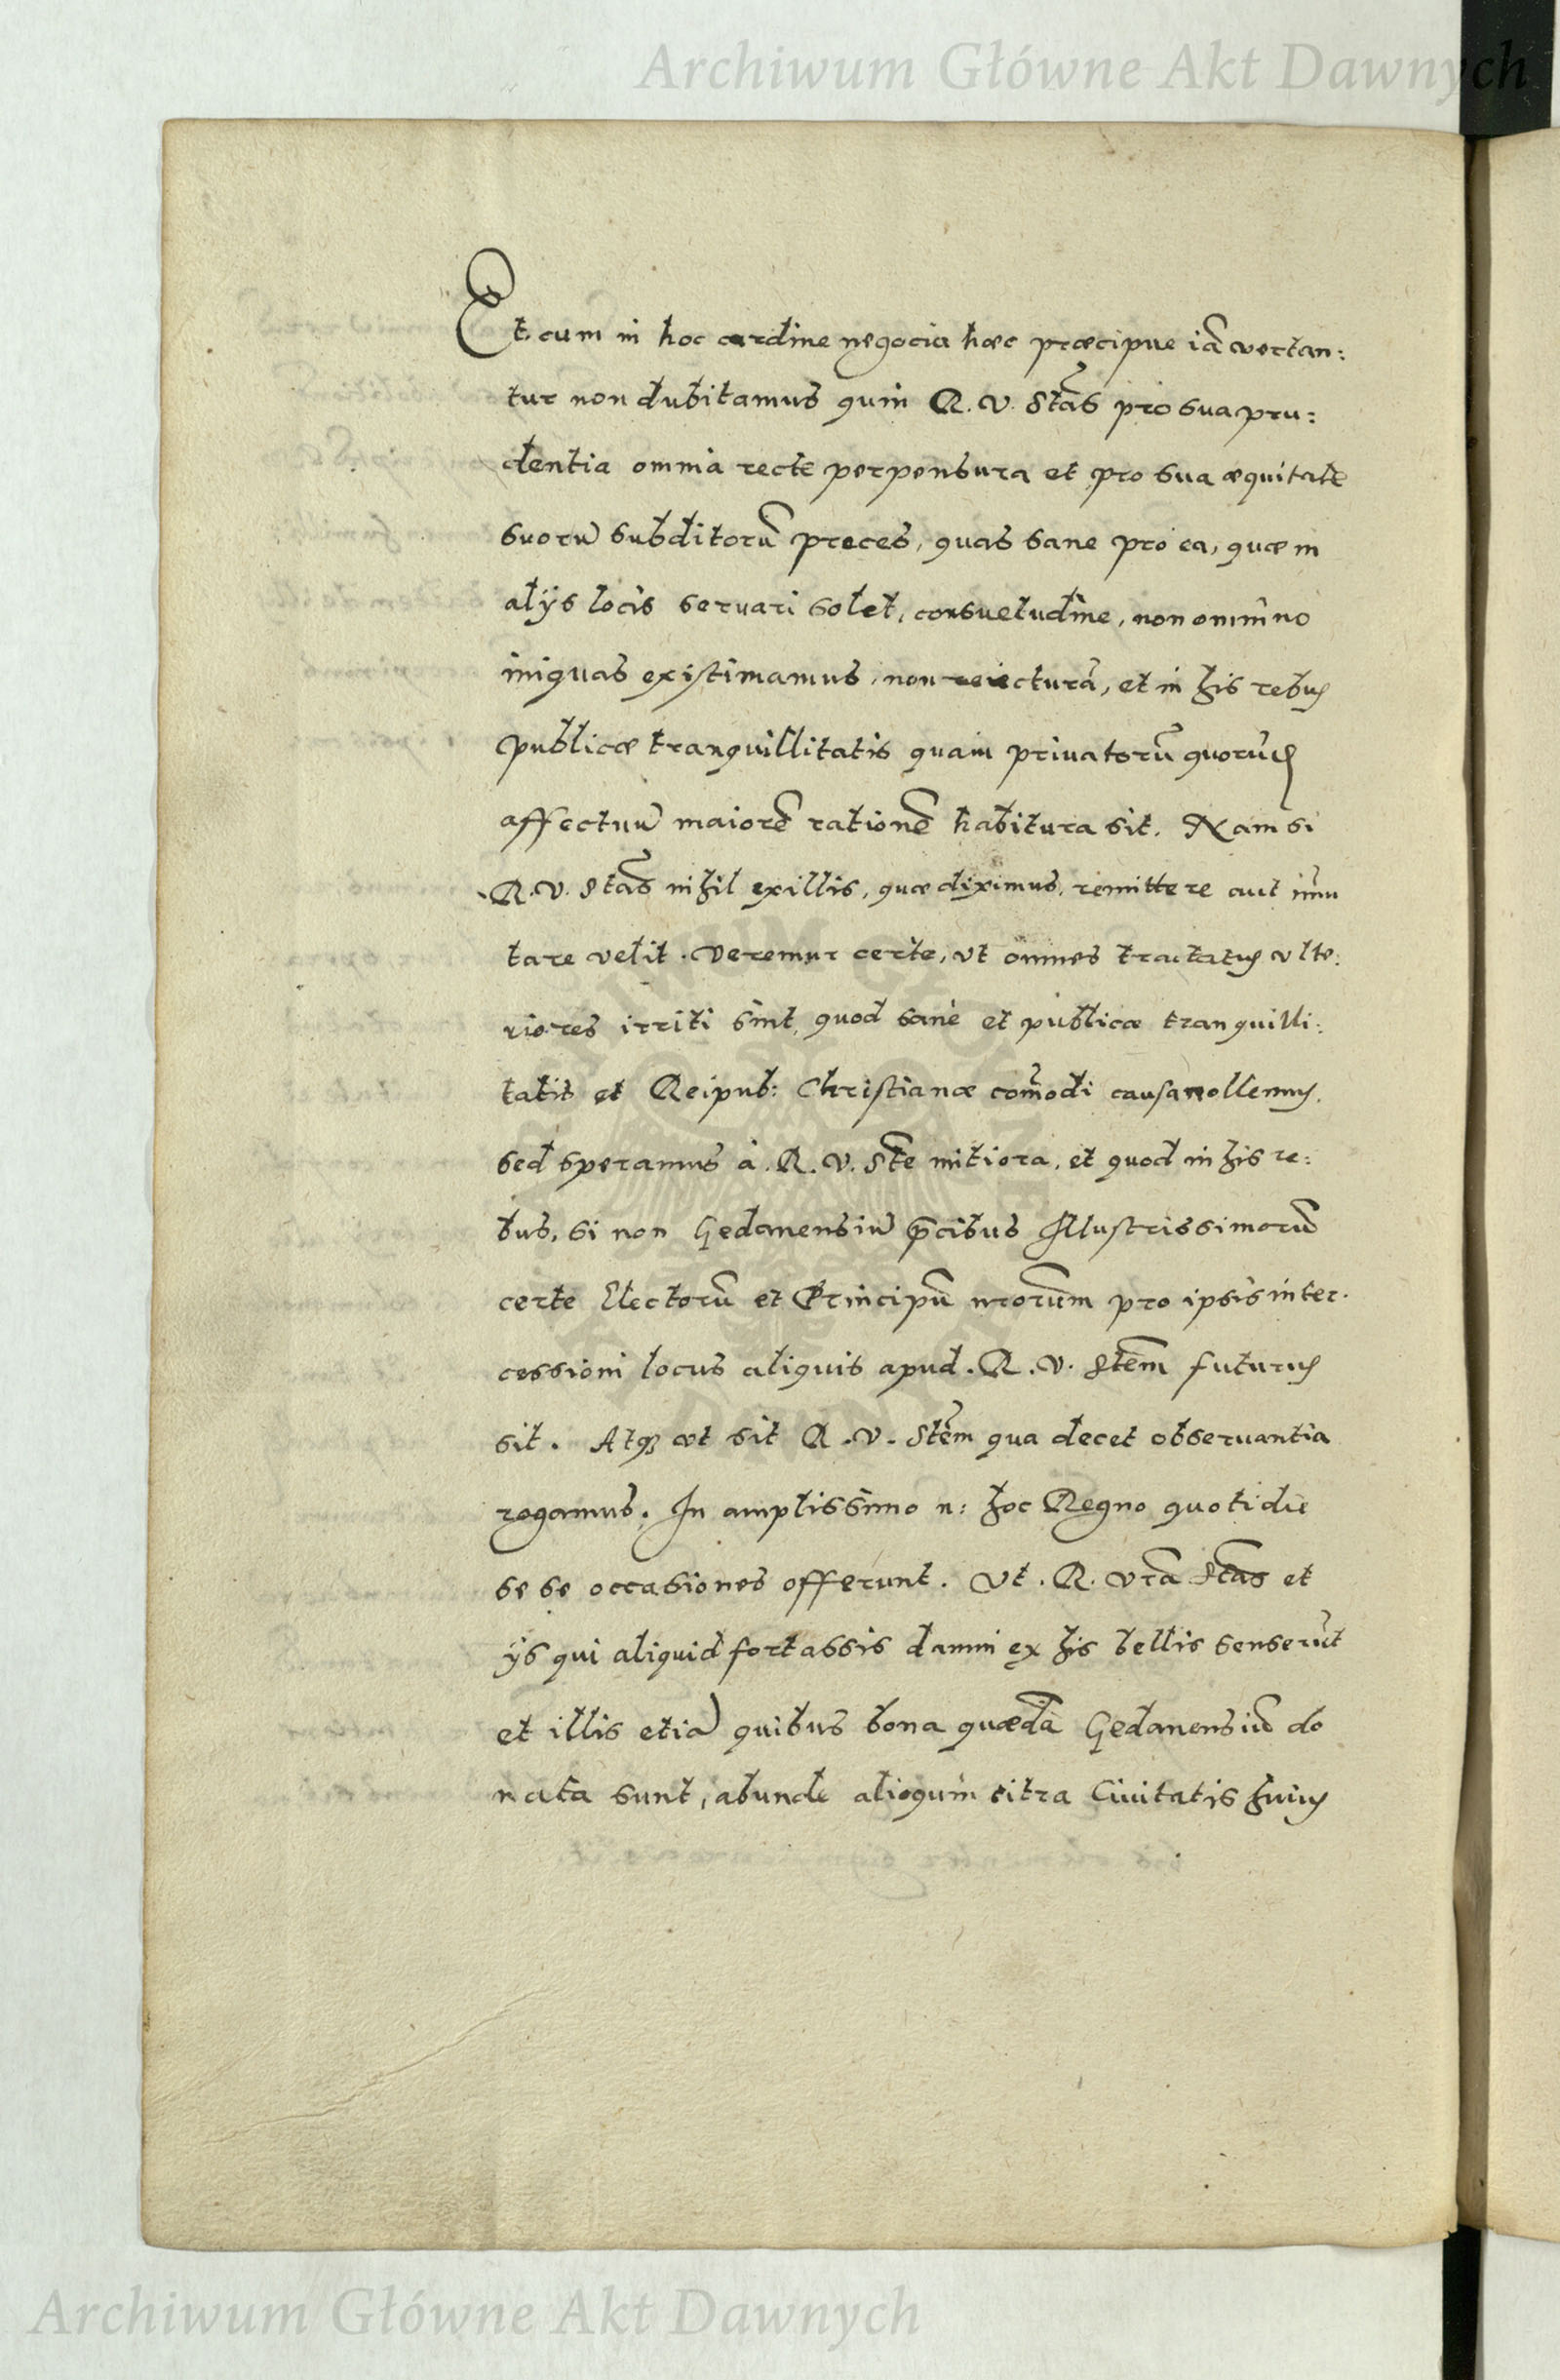 Archiwum Główne Akt Dawnych
Et cum in hoc cardine negocia hæc præcipue iã vertan:
tur non dubitamus quin R. V. Stãs pro sua pru:
dentia omnia recte perpensura et pro sua æquitate
suorũ subditorũ preces, quas sane pro ea, quæ in
alijs locis seruari solet, consuetudine, non omnino
iniquas existimamus, non reiecturã, et in his rebus
publicæ tranquillitatis quam priuatorũ quorũd
affectuũ maiorẽ rationẽ habitura sit. Nam si
R. V. Stãs nihil ex illis, quæ diximus, remittere aut im̃u
tare velit. Veremur certe, vt omnes tractatus vlte:
riores irriti sint, quod sanè et publicæ tranquilli:
tatis et Reipub: Christianæ com̃odi causa nollemus.
sed speramus à R. V. Stẽ mitiora, et quod in his re:
bus, si non Gedanensiũ p̃cibus Illustrissimorũ
certe Electorũ et Principũ nrõrum pro ipsis inter.
cessioni locus aliquis apud R. V. Stẽm futurus
sit. Atq; vt sit R. V. Stẽm qua decet obseruantia
rogamus. In amplissimo n: hoc Regno quotidie
se se occasiones offerunt. Vt R. Vrã Stãs et
ijs qui aliquid fortassis damni ex his bellis senserũt
et illis etiã quibus bona quædã Gedanensiũ do
nata sunt, abunde alioquin citra Ciuitatis huius
Archiwum Główne Akt Dawnych